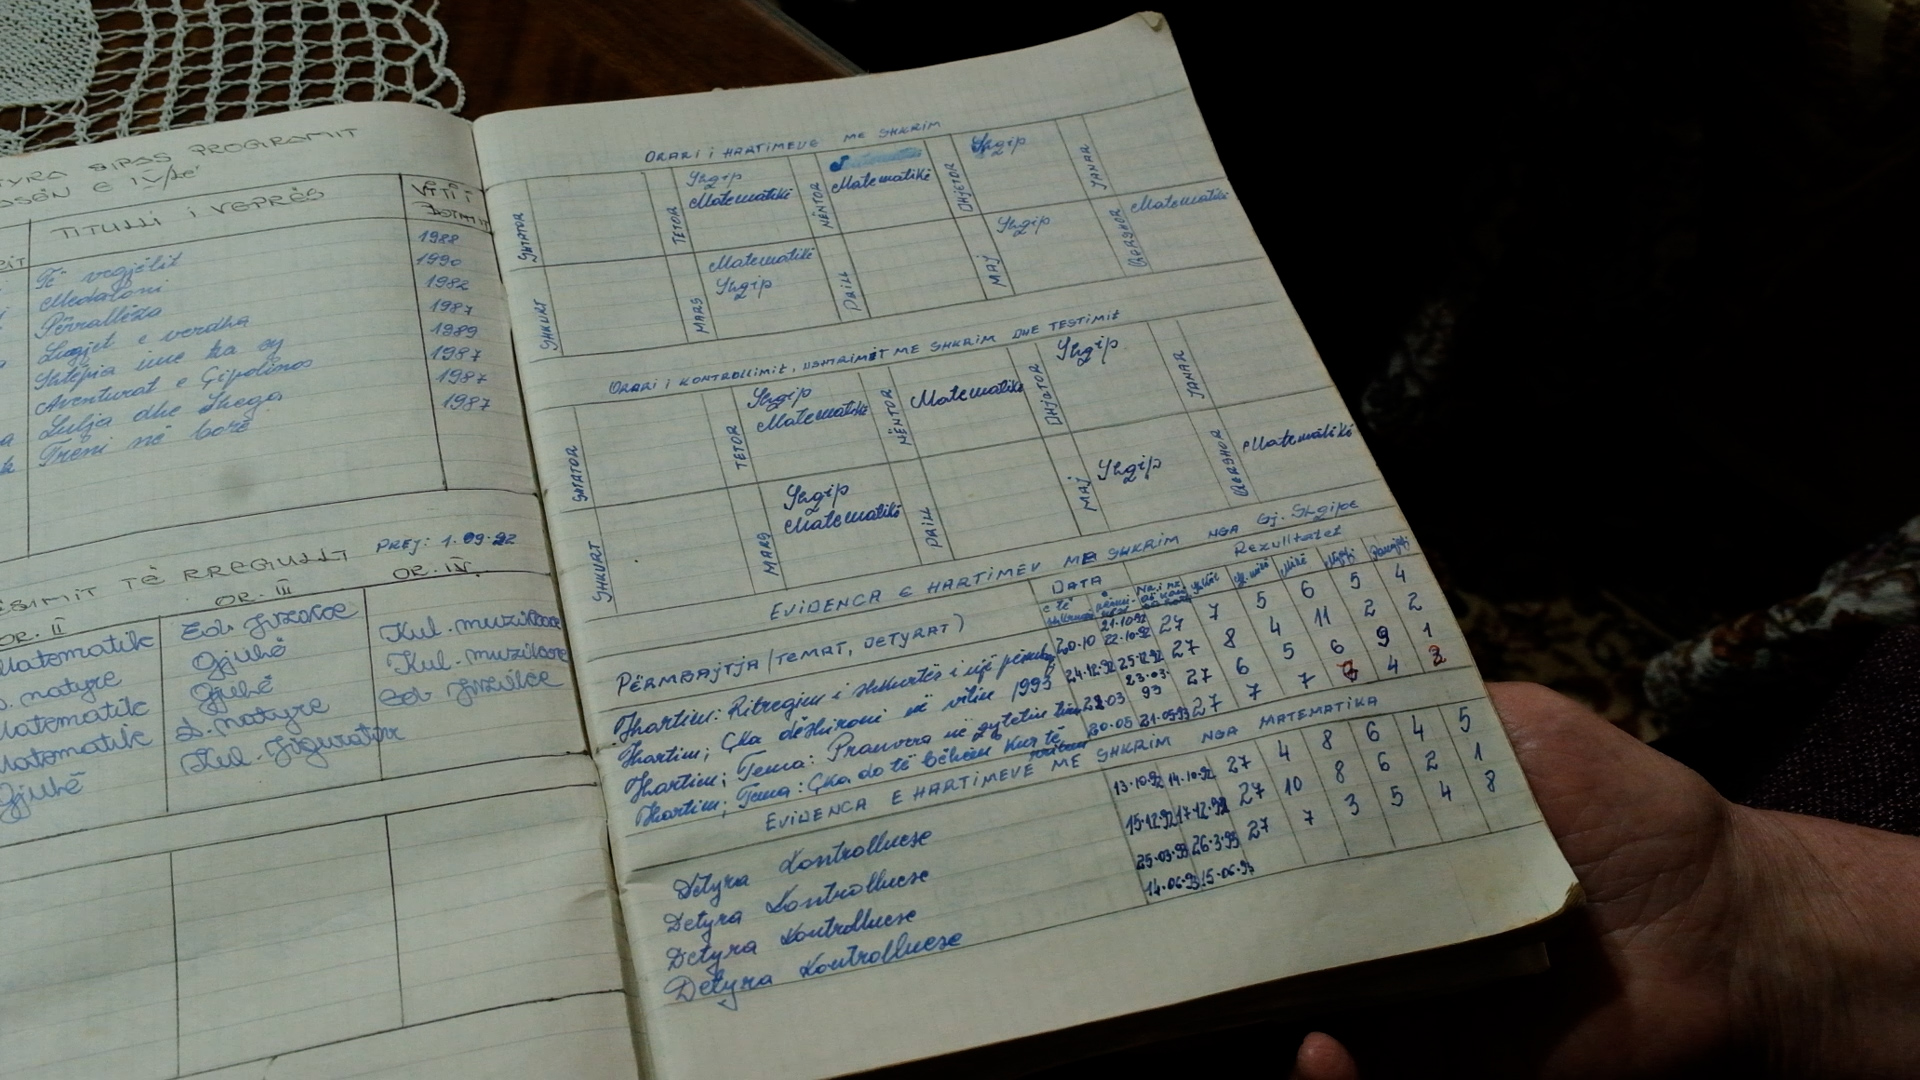 SIPAS PROGRAMIT
E IV/të
TITULLI I VEPRËS
VITI I
BOTIMIT
Të vegjëlit 1988
Medaloni 1990
Përralleza 1982
Lugjet e verdha 1987
Shtëpia ime ka sy 1989
Aventurat e Çipolinos 1987
Lulja dhe Shega 1987
Treni në borë 1987
TË RREGULLT PREJ: 1.09.92
OR. II OR. III OR. IV.
Matematik Ed. fizike Kul. muzikore
D. natyre Gjuhë Kul. muzikore
Matematik Gjuhë Ed. fizike
Matematik D. natyre
Gjuhë Kul. figurative
ORARI I HARTIMEVE ME SHKRIM
SHTATOR
TETOR Shqip
Matematikë
NËNTOR Matematikë
DHJETOR Shqip
JANAR
SHKURT
MARS Matematikë
Shqip
PRILL
MAJ Shqip
QERSHOR Matematikë
ORARI I KONTROLLIMIT, USHTRIMIT ME SHKRIM DHE TESTIMIT
SHTATOR
TETOR Shqip
Matematikë
NËNTOR Matematikë
DHJETOR Shqip
JANAR
SHKURT
MARS Shqip
Matematikë
PRILL
MAJ Shqip
QERSHOR Matematikë
EVIDENCA E HARTIMEV ME SHKRIM NGA Gj. Shqipe
PËRMBAJTJA (TEMAT, DETYRAT) DATA Rezulltatet
Hartim: Ritregim i shkurtës i një 20.10 21.10.92 22.10.92 27 7 5 6 5 4
Hartim; Çka dëshironi në vitin 1993 24.12.92 25.12.92 27 8 4 11 2 2
Hartim; Tema: Pranvera në qytetin tim 22.03 23.03.93 27 6 5 6 9 1
Hartim; Tema: Çka do të bëhem kur të 20.05 21.05.93 27 7 7 7 4 2
EVIDENCA E HARTIMEVE ME SHKRIM NGA MATEMATIKA
Detyra Kontrolluese 13.10.92 14.10.92 27 4 8 6 4 5
Detyra Kontrolluese 15.12.92 17.12.92 27 10 8 6 2 1
Detyra Kontrolluese 25.03.93 26.3.93 27 7 3 5 4 8
Detyra Kontrolluese 14.06.93 15.06.93